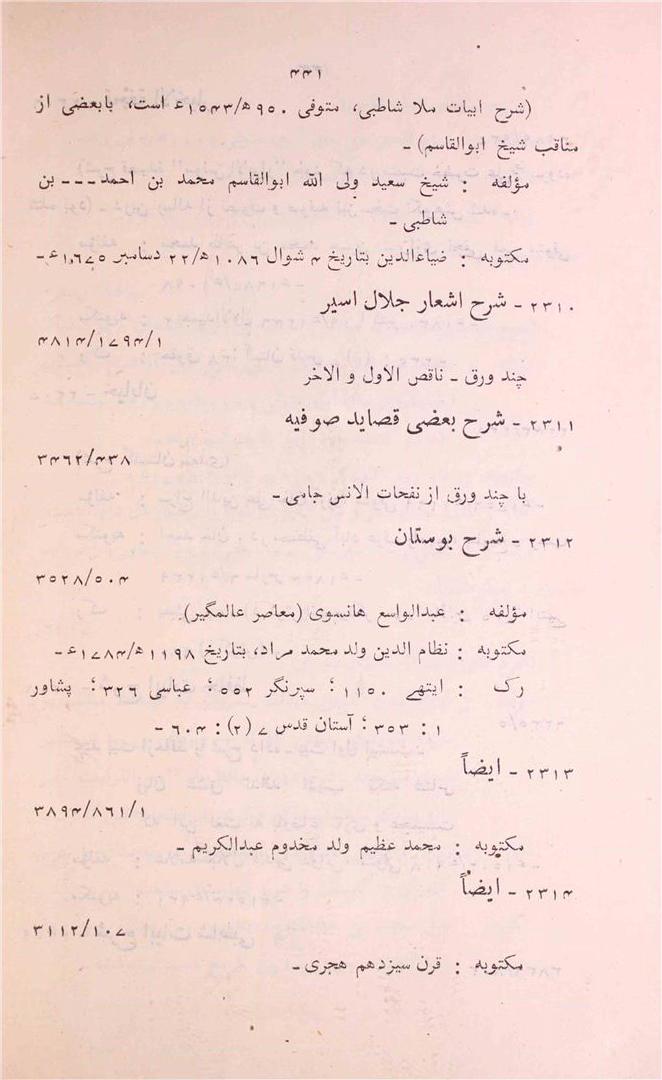 ۴۴۱
(شرح ابیات ملا شاطبی، متوفی ۹۵۰ھ/۱۵۴۳ء است، بابعضی از
مناقب شیخ ابوالقاسم) ـ
مؤلفه : شیخ سعید ولی الله ابوالقاسم محمد بن احمد ـ ـ ـ بن
شاطبی ـ
مکتوبه : ضیاءالدین بتاریخ ۴ شوال ۱۰۸۶ھ/۲۲ دسامبر ۱۶۷۵ء ـ
۲۳۱۰ ـ شرح اشعار جلال اسیر
۴۸۱۴/۱۷۹۴/۱
چند ورق ـ ناقص الاول و الاخر
۲۳۱۱ ـ شرح بعضی قصاید صوفیه
۳۴۶۲/۴۳۸
با چند ورق از نفحات الانس جامی ـ
۲۳۱۲ ـ شرح بوستان
۳۵۲۸/۵۰۴
مؤلفه : عبدالواسع هانسوی (معاصر عالمگیر).
مکتوبه : نظام الدین ولد محمد مراد، بتاریخ ۱۱۹۸ھ/۱۷۸۴ء ـ
رک : ایتھے ۱۱۵۰؛ سپرنگر ۵۵۲؛ عباسی ۳۲۶؛ پشاور
۱ : ۳۵۳؛ آستان قدس ۷ (۲) : ۶۰۴ ـ
۲۳۱۳ ـ ایضاً
۳۸۹۴/۸۶۱/۱
مکتوبه : محمد عظیم ولد مخدوم عبدالکریم ـ
۲۳۱۴ ـ ایضاً
۳۱۱۲/۱۰۷
مکتوبه : قرن سیزدهم هجری ـ